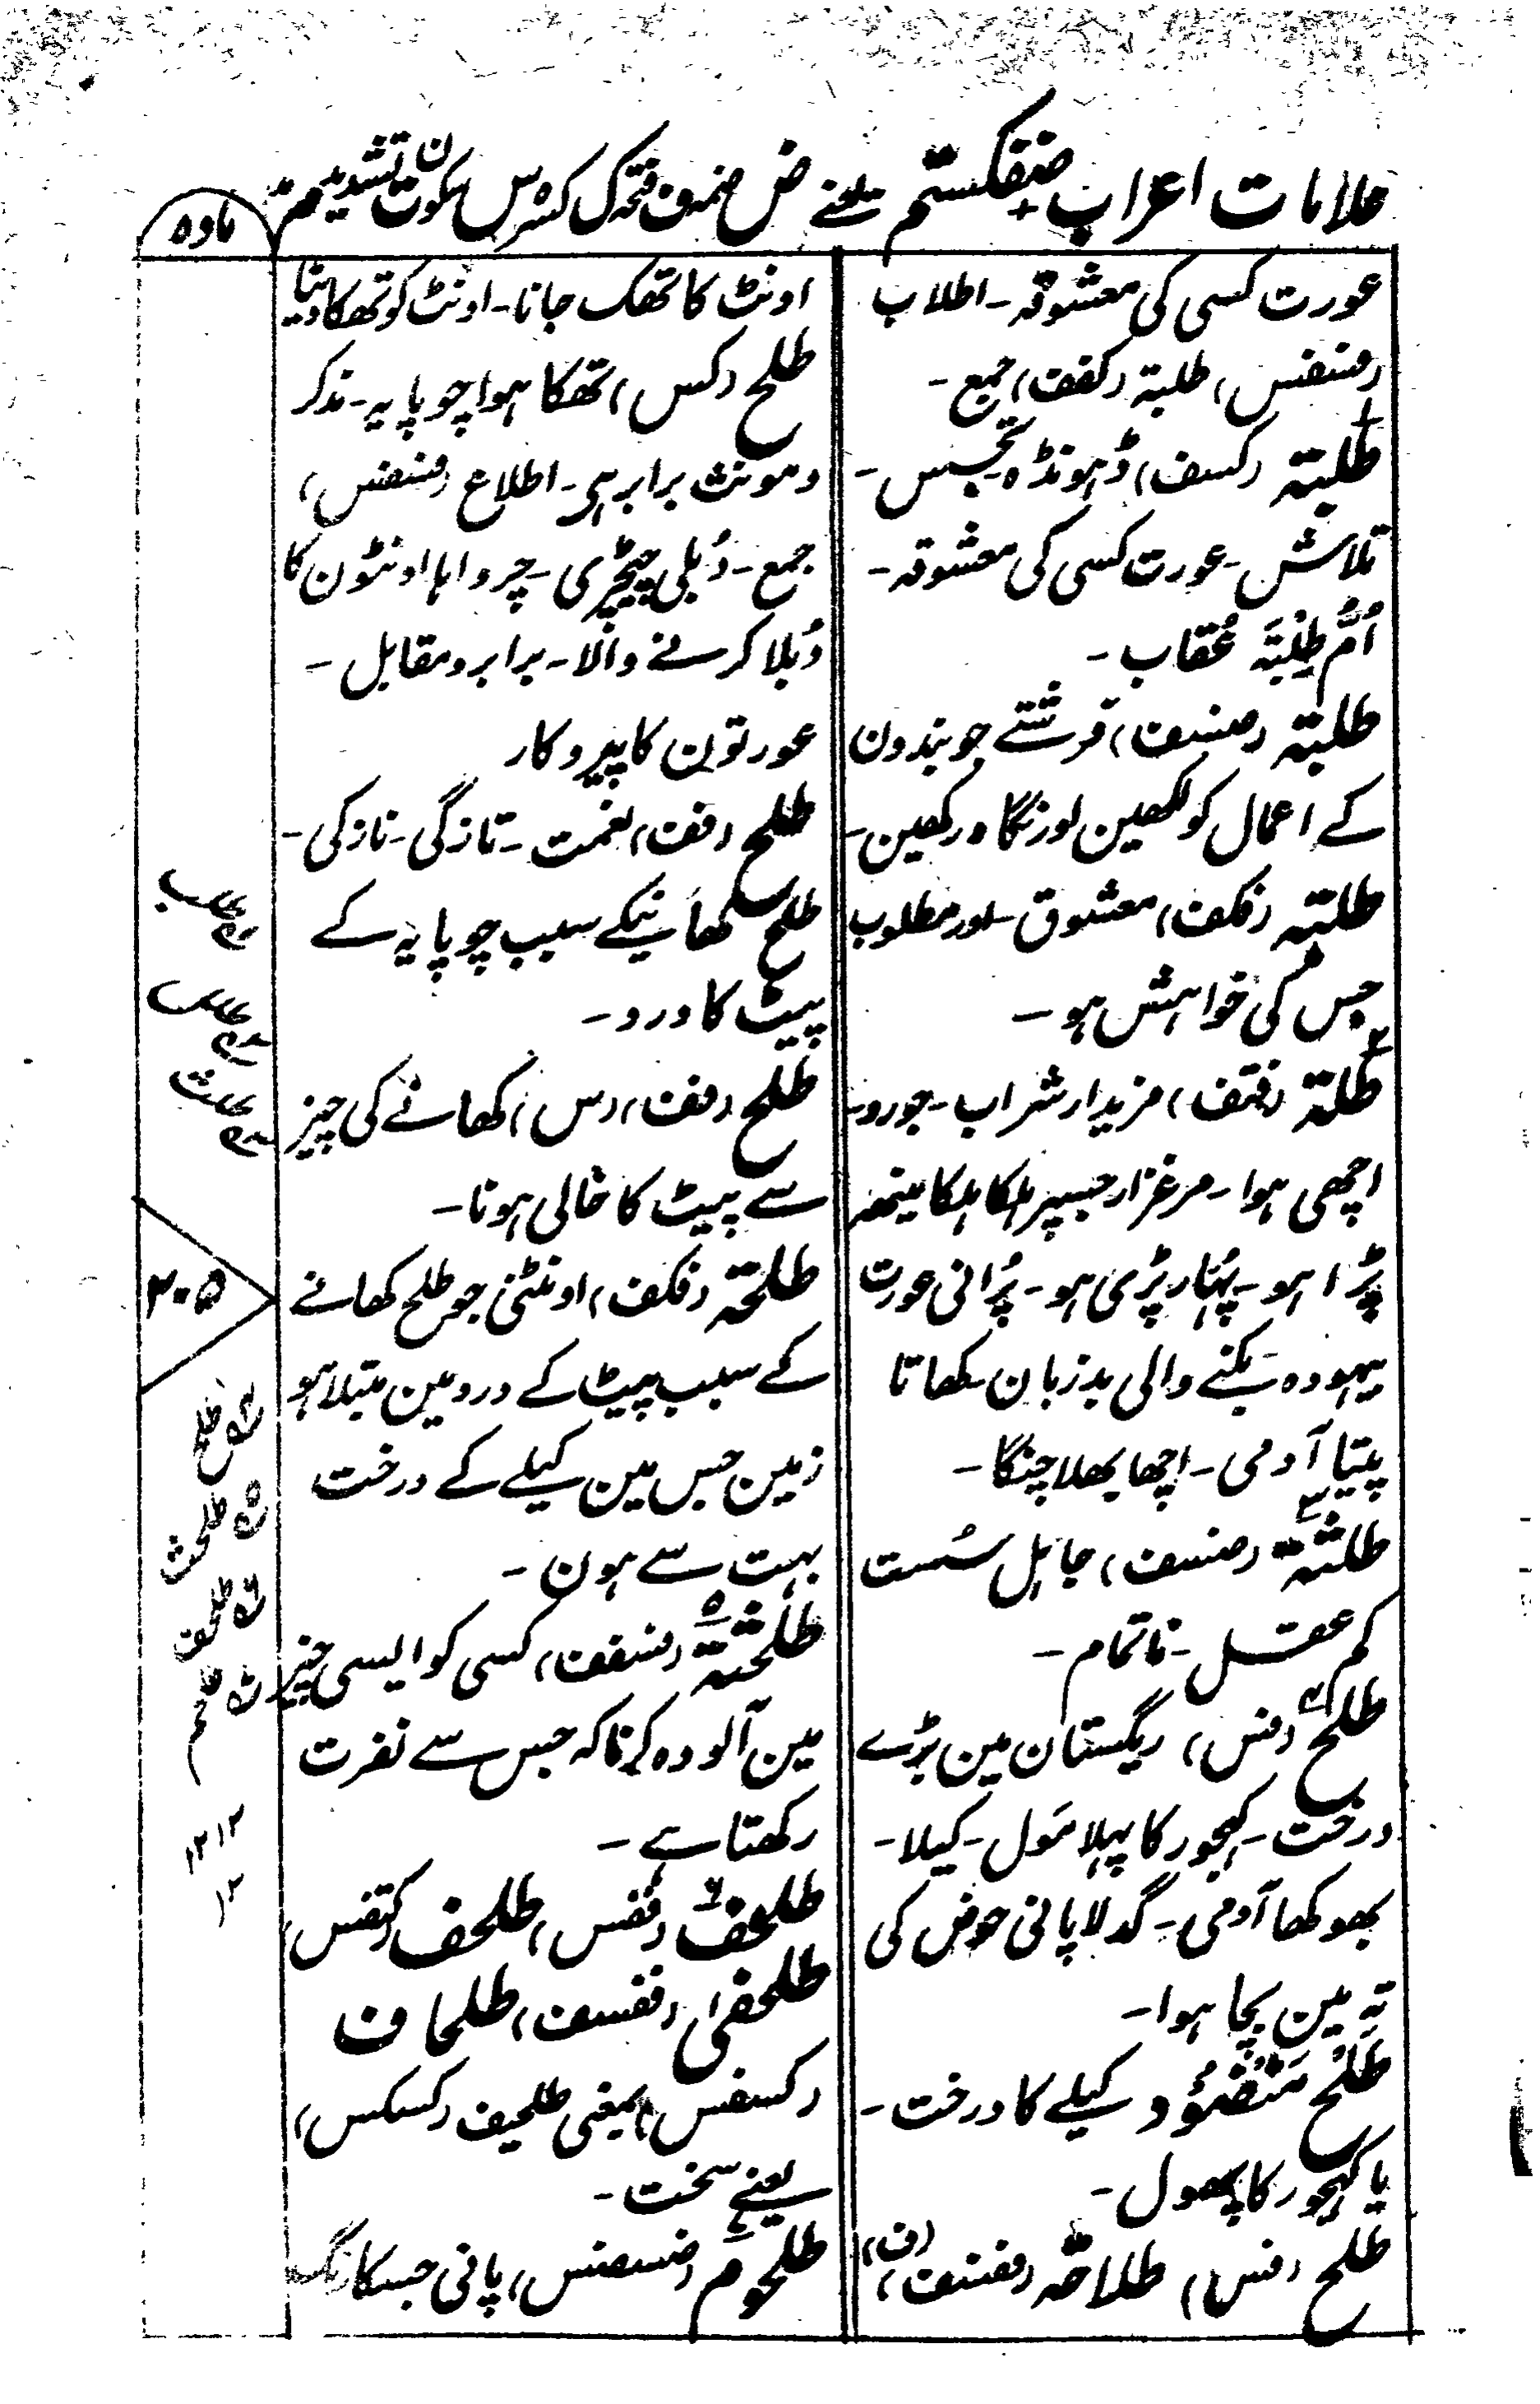 علامات اعراب ضفکستم یعنے ض ضمہ ف فتحہ ک کسرہ س سکون ت تشدید م مد
مادہ
عورت کسی کی معشوقہ - اطلاب
(فسفس) طلبۃ (کفف) جمع -
طلبۃ (کسف) ڈہونڈہ - تجسس -
تلاش - عورت کسی کی معشوقہ -
اُمّ طِلْبَۃ عُقاب -
طلبۃ (ضسف) فرشتے جو بندون
کے اعمال کو لکھین اور نگاہ رکھین -
طلبۃ (فکف) معشوق - اور مطلوب
جس کی خواہش ہو -
طلۃ (فتف) مزیدار شراب - جورو -
اچھی ہوا - مرغزار جسپر ہلکا ہلکا مینھہ
پڑا ہو - پُہار پڑی ہو - پُرانی عورت
بیہودہ بَکنے والی بدزبان - کھاتا
پیتا آدمی - اچھا بھلا چنگا -
طلثۃ (ضسف) جاہل سُست
کم عقل - ناتمام -
طلح (فس) ریگستان مین بڑے
درخت - کہجور کا پہلا مَول - کیلا -
بھوکھا آدمی - گدلا پانی حوض کی
تہ مین بچا ہوا -
طَلْح مَنْضُوْد کیلے کا درخت -
یا کہجور کا پھول -
طلح (فس) طلاحۃ (ففف) (ف)
اونٹ کا تھک جانا - اونٹ کو تھکا دینا
طلح (کس) تھکا ہوا چوپایہ - مذکر
و مونث برابر ہی - اطلاع (فسفس)
جمع - دُبلی چیچڑی - چرواہا اونٹون کا
دُبلا کرنے والا - برابر و مقابل -
عورتون کا پیروکار
طلح (فف) نعمت - تازگی - نازکی -
طلح کھانیکے سبب چوپایہ کے
پیٹ کا درد -
طلح (فف) (س) کھانے کی چیز
سے پیٹ کا خالی ہونا -
طلحۃ (فکف) اونٹنی جو طلح کھانے
کے سبب پیٹ کے درد مین مبتلا ہو
زمین جس مین کیلے کے درخت
بہت سے ہون -
طلحثۃ (فسفف) کسی کو ایسی چیز
مین آلودہ کرنا کہ جس سے نفرت
رکھتا ہے -
طلحف (ففس) طلحف (کتفس)
طلحفیٰ (ففسف) طلحاف
(کسفس) بمعنی طلحیف (کسکس)
یعنے سخت -
طلحوم (ضسضس) پانی جسکا رنگ
طلب
طلس
طلث
۲۰۵
طلح
طلحث
طلحف
طلحم
۱۲ ۱۲
۱۲